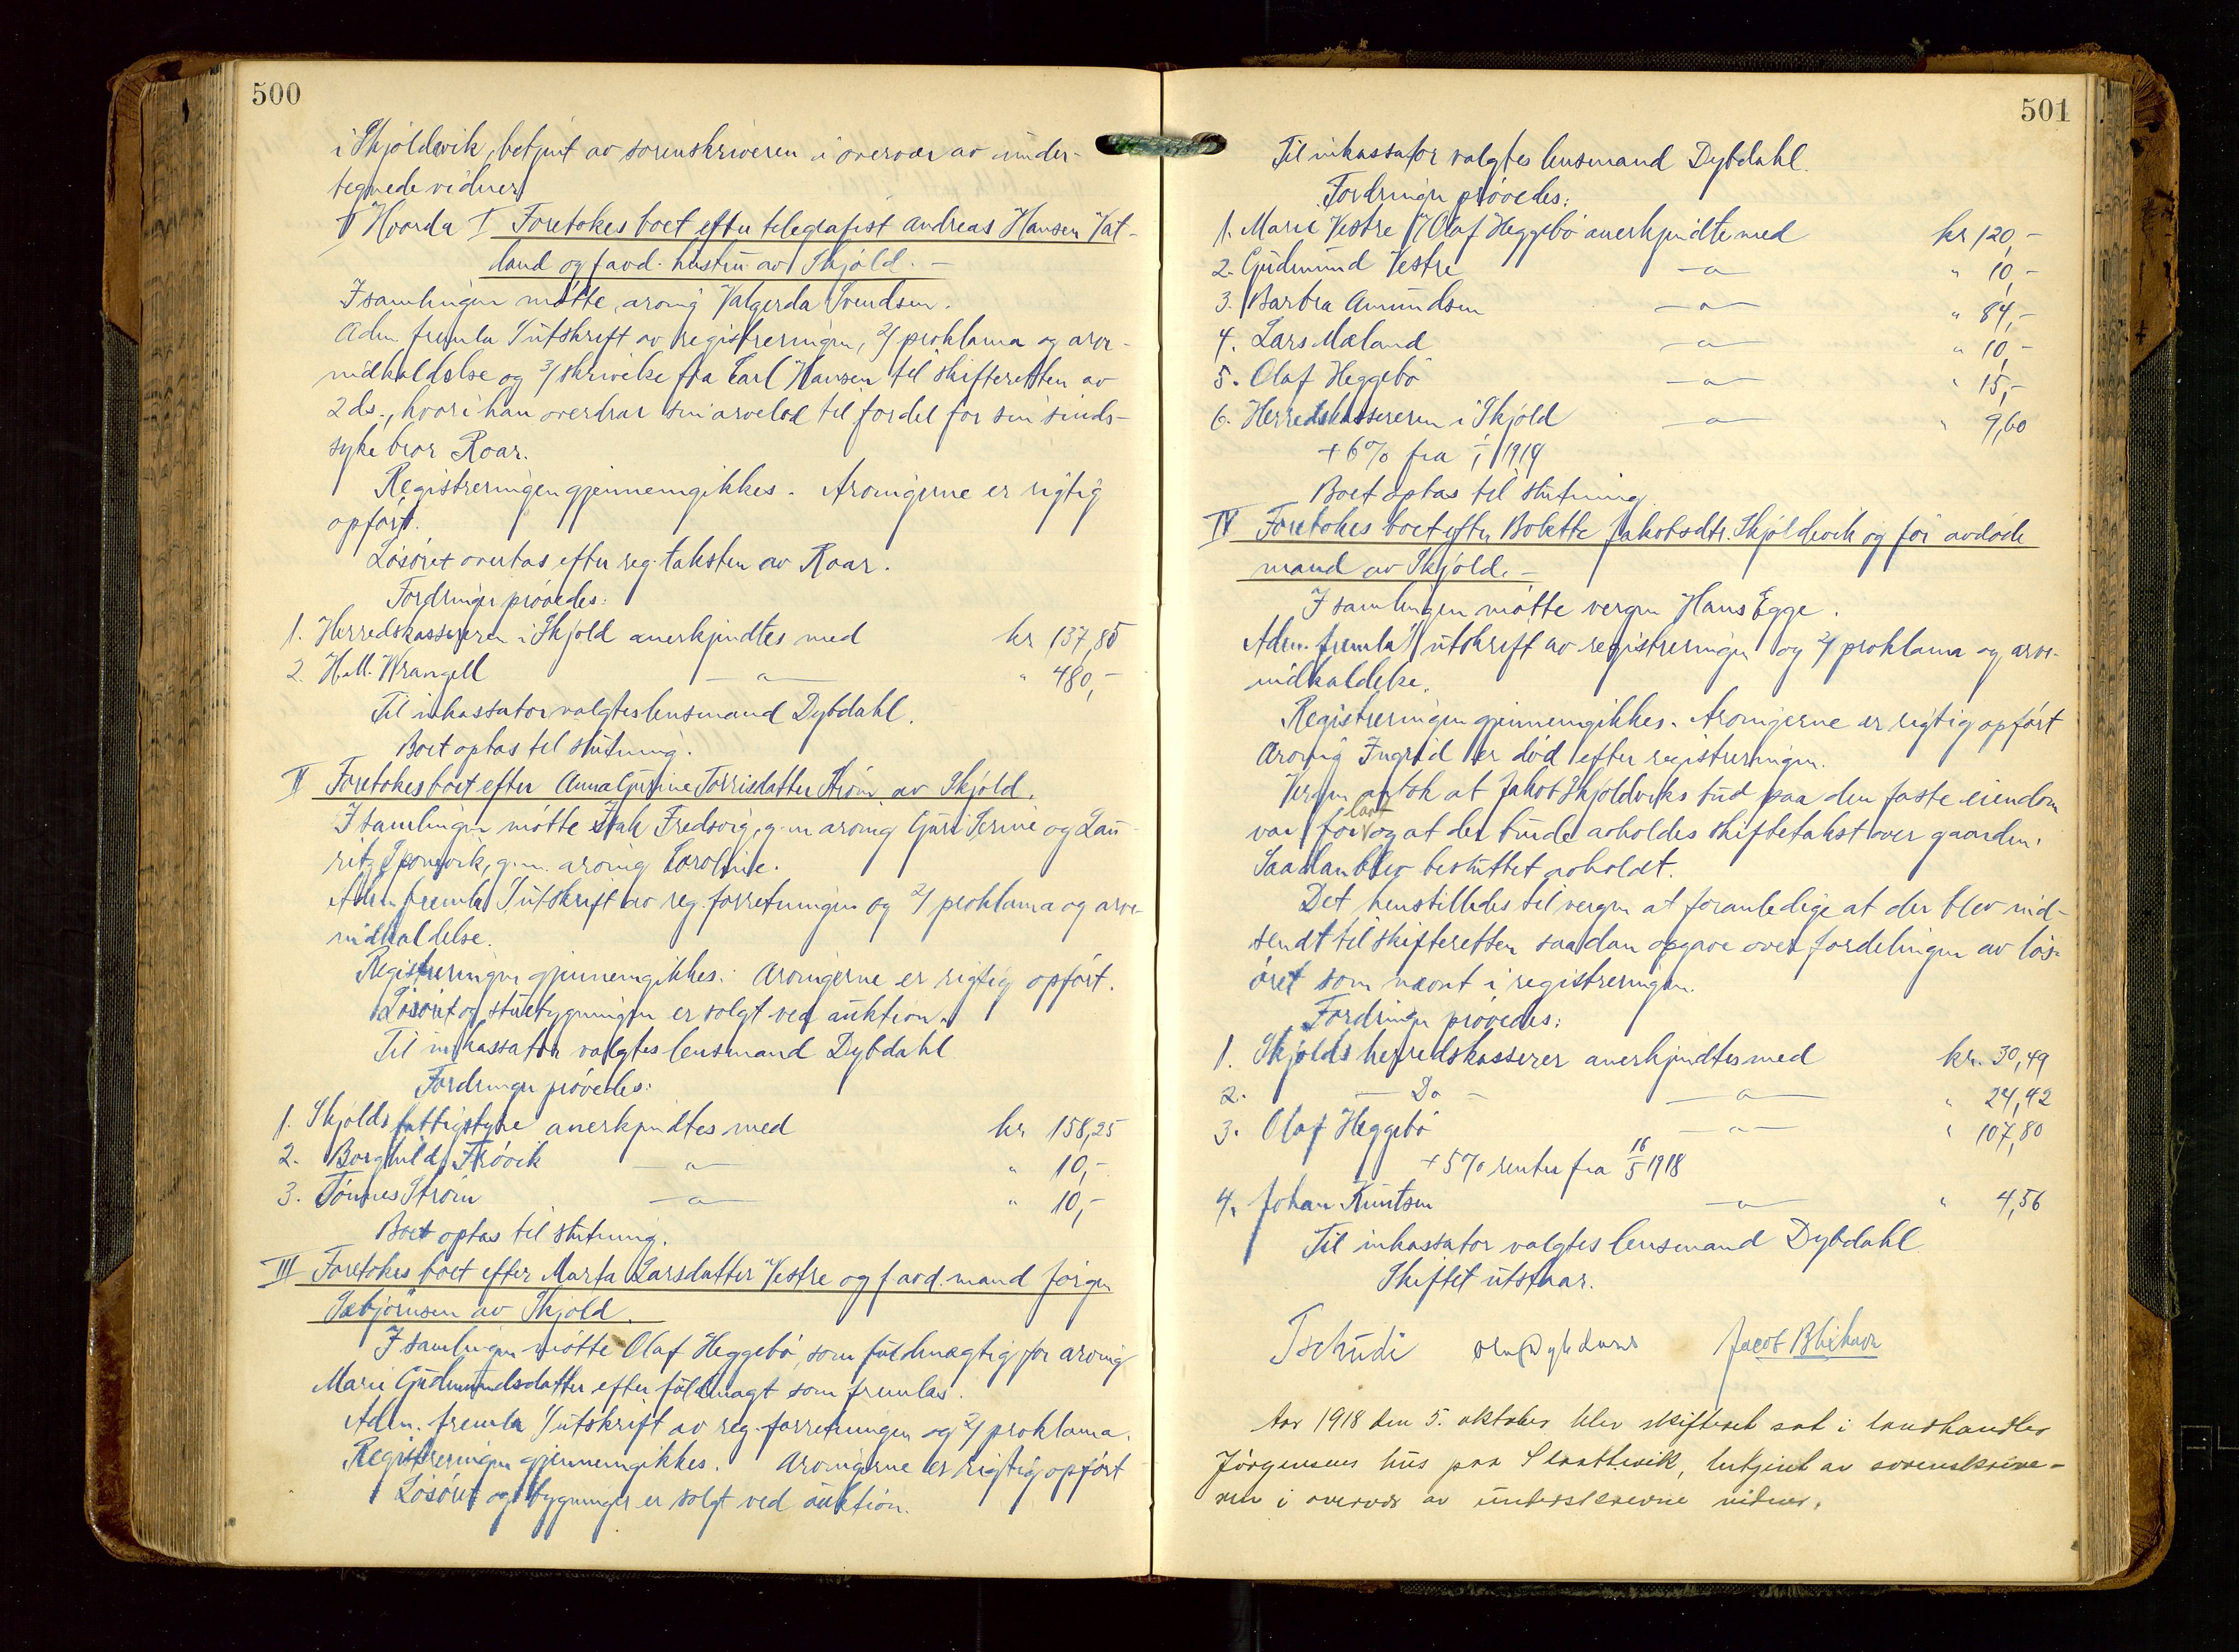 500
i Skjoldevik, betjent av sorenskriveren i overvær av under-
tegnede vidner
Hvorda I Foretokes boet efter telegrafist Andreas Hansen Vat-
land og favd. hustru av Skjold. -
I samlingen møtte arving Valgerda Svendsen.
Adm. fremla 1/ utskrift av registreringen, 2/ proklama og arve-
indkaldelse og 3/ skrivelse fra Carl Hansen til skifteretten av
2 ds., hvori han overdrar sin arvelod til fordel for sin sinds-
syke bror Roar.
Registreringen gjennemgikkes. Arvingerne er rigtig
opført.
Løsøret overtas efter reg. taksten av Roar.
Fordringer prøvedes:
1. Herredskassereren i Skjold anerkjendtes med kr 137,85
2. H. M. Wrangell -"- " 480,-
Til inkassator valgtes lensmand Dybdahl.
Boet optas til slutning.
II Foretokes boet efter Anna Gurine Torrisdatter Strøm av Skjold.
I samlingen møtte Isak Fredsvig, g.m. arving Guri Serine og Lau-
ritz Sponevik, g.m. arving Caroline.
Adm. fremla 1/ utskrift av reg. forretningen og 2/ proklama og arve-
indkaldelse.
Registreringen gjennemgikkes. Arvingerne er rigtig opført.
Løsøret og stuebygningen er solgt ved auktion.
Til inkassator valgtes lensmand Dybdahl
Fordringer prøvedes:
1. Skjolds fattigstyre anerkjendtes med kr 158,25
2. Borghild Frøvik -"- " 10,-
3. Tønnes Strøm -"- " 10,-
Boet optas til slutning.
III Foretokes boet efter Marta Larsdatter Vestre og favd. mand Jørgen
Sæbjørnsen av Skjold.
I samlingen møtte Olaf Heggebø, som fuldmægtig for arving
Marie Gudmundsdatter efter fuldmagt som fremlaes.
Adm. fremla 1/ utskrift av reg. forretningen og 2/ proklama.
Registreringen gjennemgikkes. Arvingerne er rigtig opført
Løsøret og bygninger er solgt ved auktion.
501
Til inkassator valgtes lensmand Dybdahl.
Fordringer prøvedes:
1. Marie Vestre v/ Olaf Heggebø anerkjendtes med kr 120,-
2. Gudmund Vestre -"- " 10,-
3. Barbra Amundsen -"- " 84,-
4. Lars Mæland -"- " 10,-
5. Olaf Heggebø -"- " 15,-
6. Herredskassereren i Skjold -"- " 9,60
+ 6% fra 1/1 1914
Boet optas til slutning.
IV Foretokes boet efter Bolette Jakobsdtr. Skjoldevik og før avdøde
mand av Skjold. -
I samlingen møtte vergen Hans Egge.
Adm. fremla 1/ utskrift av registreringen og 2/ proklama og arve-
indkaldelse.
Registreringen gjennemgikkes. Arvingerne er rigtig opført
Arving Ingrid er død efter registreringen.
Vergen antok at Jakob Skjoldeviks bud paa den faste eiendom
var for lavt og at der burde avholdes skiftetakst over gaarden.
Saadan blev besluttet avholdt.
Det henstilledes til vergen at foranledige at der blev ind-
sendt til skifteretten saadan opgave over fordelingen av løs-
øret som nævnt i registreringen.
Fordringer prøvedes:
1. Skjolds herredskasserer anerkjendtes med kr. 30,49
2. - Do - -"- " 24,42
3. Olaf Heggebø -"- " 107,80
+ 5% renter fra 16/5 1918
4. Johan Knutsen -"- " 4,56
Til inkassator valgtes lensmand Dybdahl
Skiftet utstaar.
Tschudi Jacob
Aar 1918 den 5. oktober blev skifteret sat i landhandler
Jørgensens hus paa Slaattevik, betjent av sorenskrive-
ren i overvær av underskrevne vidner.